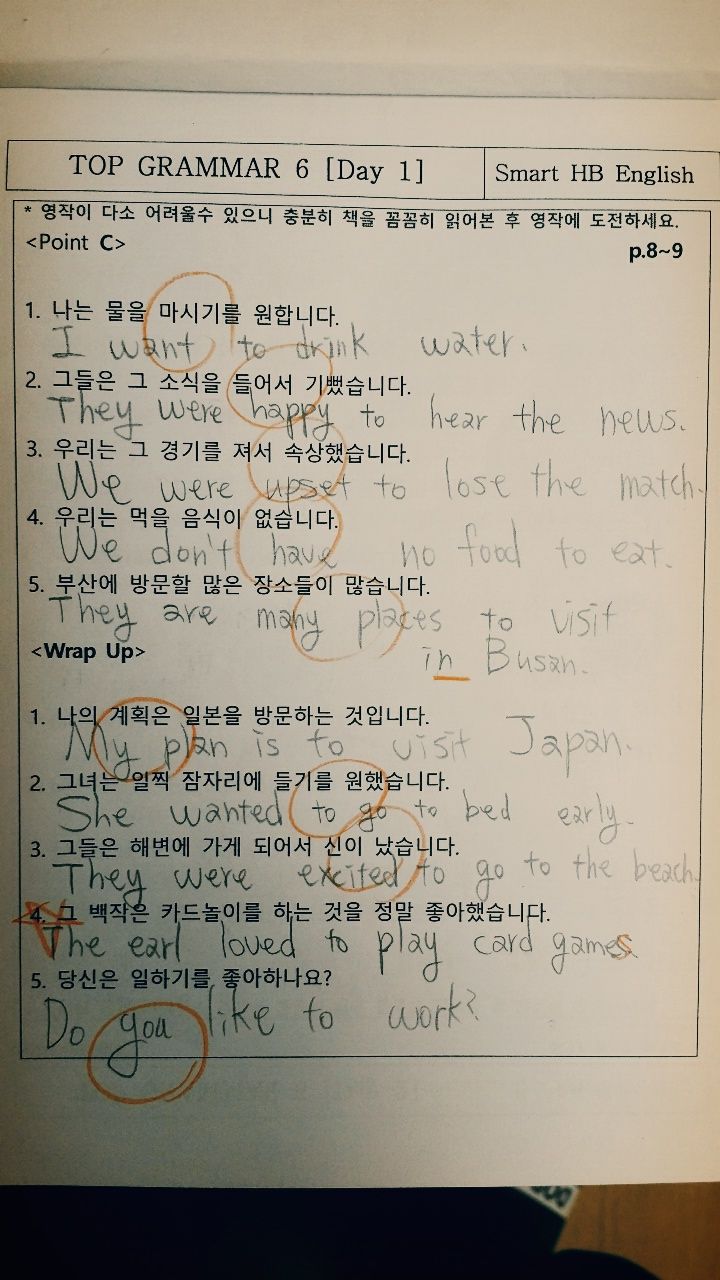 TOP GRAMMAR 6 [Day 1]
Smart HB English
* 영작이 다소 어려울수 있으니 충분히 책을 꼼꼼히 읽어본 후 영작에 도전하세요.
<Point C>
p.8~9
1. 나는 물을 마시기를 원합니다.
I want to drink water.
2. 그들은 그 소식을 들어서 기뻤습니다.
They were happy to hear the news.
3. 우리는 그 경기를 져서 속상했습니다.
We were upset to lose the match.
4. 우리는 먹을 음식이 없습니다.
We don't have no food to eat.
5. 부산에 방문할 많은 장소들이 많습니다.
They are many places to visit
in Busan.
<Wrap Up>
1. 나의 계획은 일본을 방문하는 것입니다.
My plan is to visit Japan.
2. 그녀는 일찍 잠자리에 들기를 원했습니다.
She wanted to go to bed early.
3. 그들은 해변에 가게 되어서 신이 났습니다.
They were excited to go to the beach.
4. 그 백작은 카드놀이를 하는 것을 정말 좋아했습니다.
The earl loved to play card games.
5. 당신은 일하기를 좋아하나요?
Do you like to work?